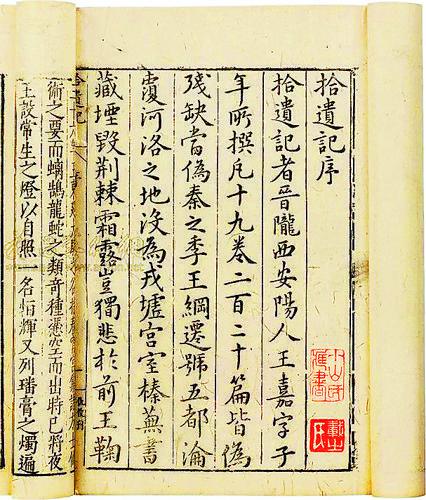 拾遺記序
拾遺記者晉隴西安陽人王嘉字子
年所撰凡十九卷二百二十篇皆偽
殘缺當偽秦之季王綱遷號五都淪
覆河洛之地沒為戎墟宮室榛蕪書
藏堙毀荆棘霜露豈獨悲於前王鞠
術之要而螭鵠龍蛇之類奇種憑空而出時已將夜
王設常生之燈以自照一名恒輝又列璠膏之燭遍